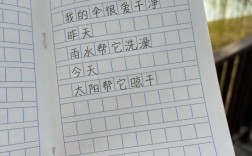 我的伞很爱干净
昨天
雨水帮它洗澡
今天
太阳帮它晾干